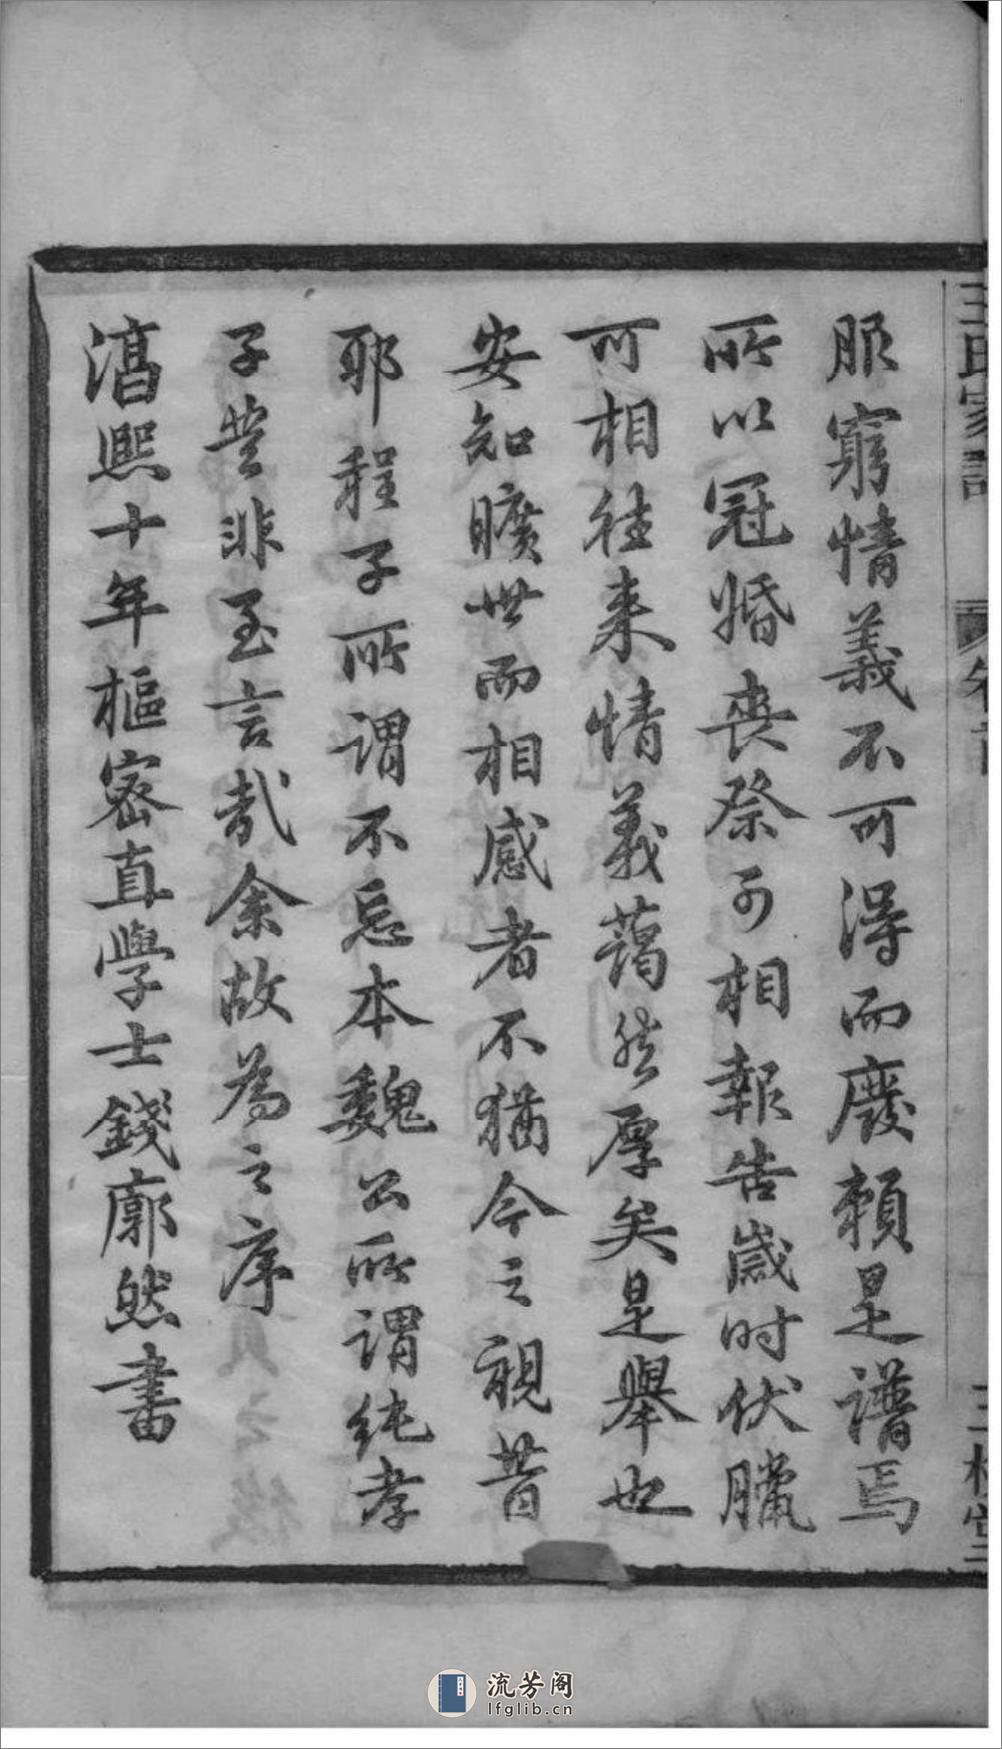 王氏家譜 卷首 三槐堂
服窮情義不可得而廢賴是譜焉
所以冠婚喪祭可相報告歲时伏臘
可相往来情義藹然厚矣是舉也
安知曠世而相感者不猶今之視昔
耶程子所謂不忘本魏公所謂純孝
子豈非至言哉余故為之序
淳熙十年樞密直學士錢廓然書
流芳阁
lfglib.cn